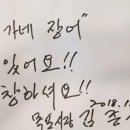 가네 장어"
있어요!!
창하셔요!!
2018.1
목포시장 김 준